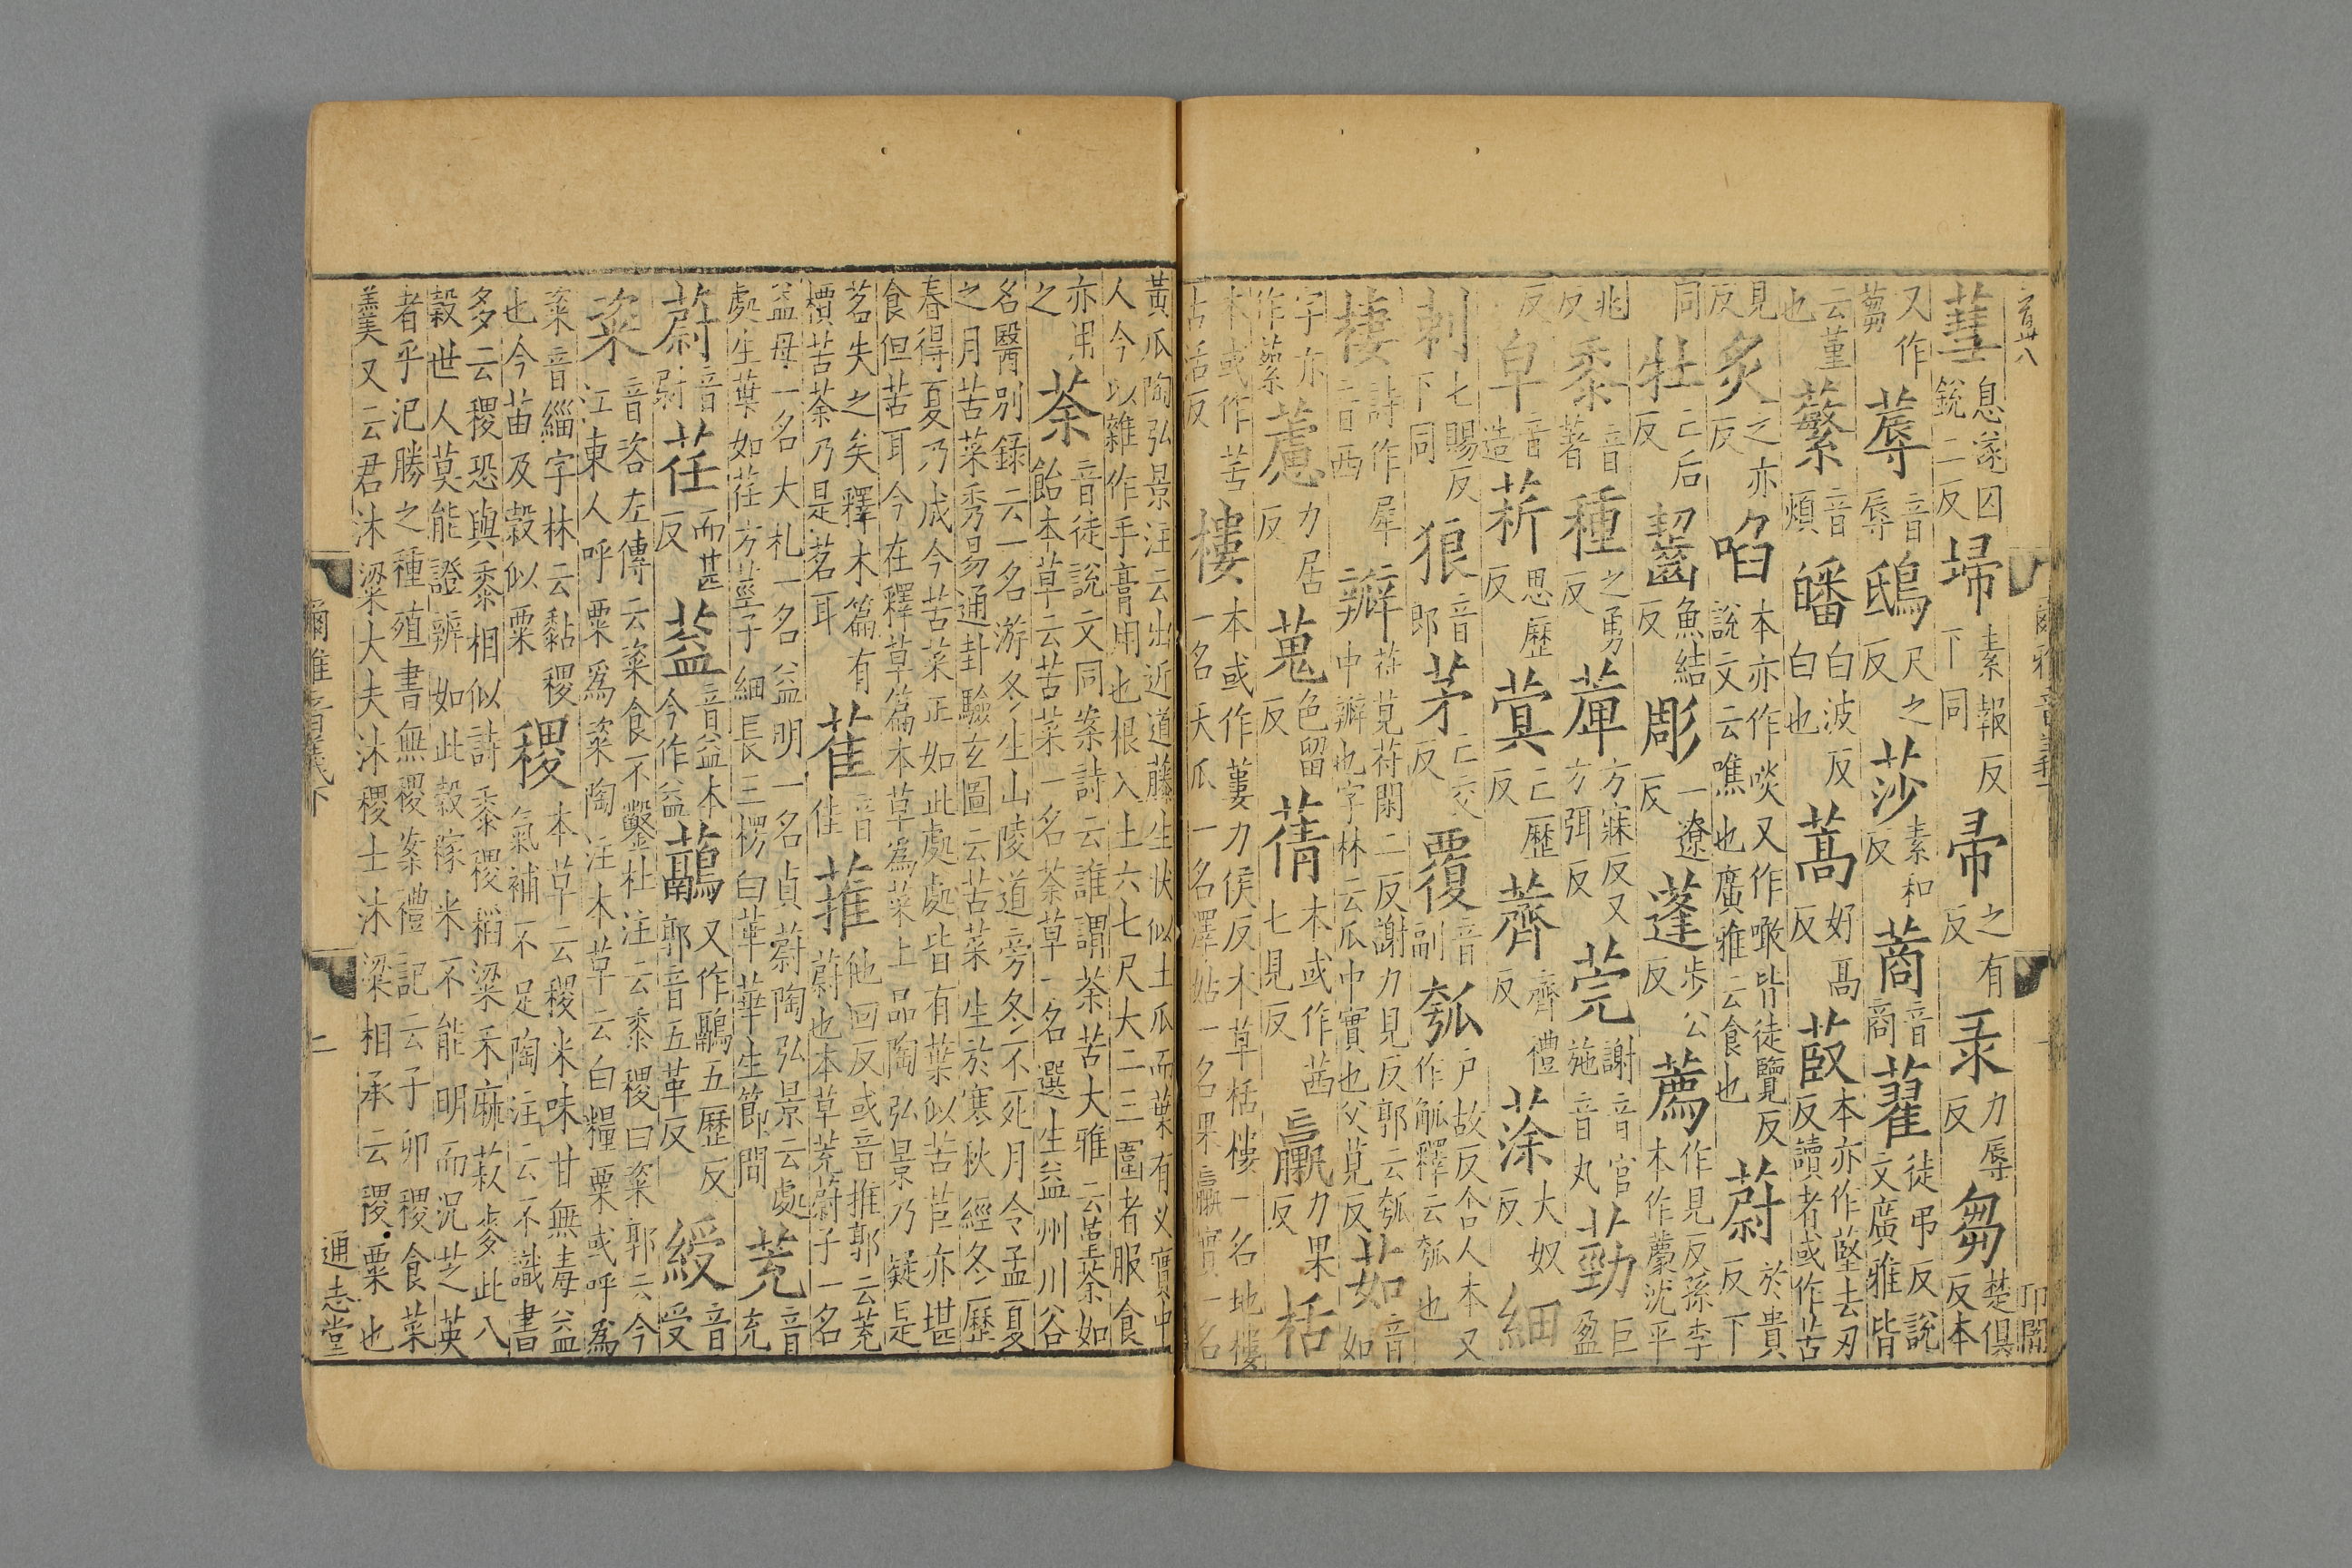 音卅八
卬闕
蔧 息遂囚銳二反 埽 素報反下同 帚 之有反 录 力辱反 芻 楚俱反本
又作蒭 蓐 音辱 鴟 尺之反 莎 素和反 蔏 音商 藋 徒弔反說文廣雅皆
云菫也 蘩 音煩 皤 白波反白也 蒿 好高反 菣 本亦作堅去刃反讀者或作苦
見反 炙 之亦反 啗 本亦作啖又作噉皆徒覽反說文云噍也廣雅云食也 蔚 於貴反下
同 牡 亡后反 齧 魚結反 彫 一遼反 蓬 步公反 薦 作見反孫李本作藨沈平
兆反 黍 音著 種 之勇反 萆 方寐反又方弭反 莞 謝音官施音丸 葝 巨盈
反 皁 音造 菥 思歷反 蓂 亡歷反 薺 齊禮反 蒤 大奴反 細
刺 七賜反下同 狼 音郎 茅 亡交反 覆 音副 瓠 户故反舍人本又作觚釋云瓠也
棲 詩作犀音西 瓣 苻莧苻閑二反謝力見反郭云瓠中瓣也字林云瓜中實也父莧反 茹 音如
字亦作蘩 藘 力居反 蒐 色留反 蒨 本或作茜七見反 蠃 力果反 栝
本或作苦古活反 樓 本或作蔞力侯反本草栝樓一名地樓一名天瓜一名澤姑一名果蠃實一名
爾雅音義下 一
黃瓜陶弘景注云出近道藤生狀似土瓜而葉有义實中人今以雜作手膏用也根入土六七尺大二三圍者服食
亦用之 荼 音徒說文同案詩云誰謂荼苦大雅云菫荼如飴本草云苦菜一名荼草一名選生益州川谷
名醫別錄云一名游冬生山陵道旁冬不死月令孟夏之月苦菜秀易通卦驗玄圖云苦菜生於寒秋經冬歷
春得夏乃成今苦菜正如此處處皆有葉似苦苣亦堪食但苦耳今在釋草篇本草爲菜上品陶弘景乃疑是
茗失之矣釋木篇有檟苦荼乃是茗耳 萑 音隹 蓷 他回反或音推郭云茺蔚也本草茺蔚子一名
益母一名大札一名益明一名貞蔚陶弘景云處處生葉如荏方莖子細長三楞白華華生節間 茺 音充
蔚 音尉 荏 而甚反 蒫 音益本今作益 虉 又作鷊五歷反郭音五革反 綬 音受
粢 音咨左傳云粢食不鑿杜注云黍稷曰粢郭云今江東人呼粟爲粢陶注本草云白糧粟或呼爲
粢音緇字林云黏稷也今苗及穀似粟 稷 本草云稷米味甘無毒益氣補不足陶注云不識書
多云稷恐與黍相似詩黍稷稻粱禾麻菽麥此八穀世人莫能證辨如此穀稼米不能明而況芝英
者乎汜勝之種殖書無稷案禮記云子卯稷食菜羹又云君沐粱大夫沐稷士沐粱相承云稷粟也
爾雅音義下 二 通志堂